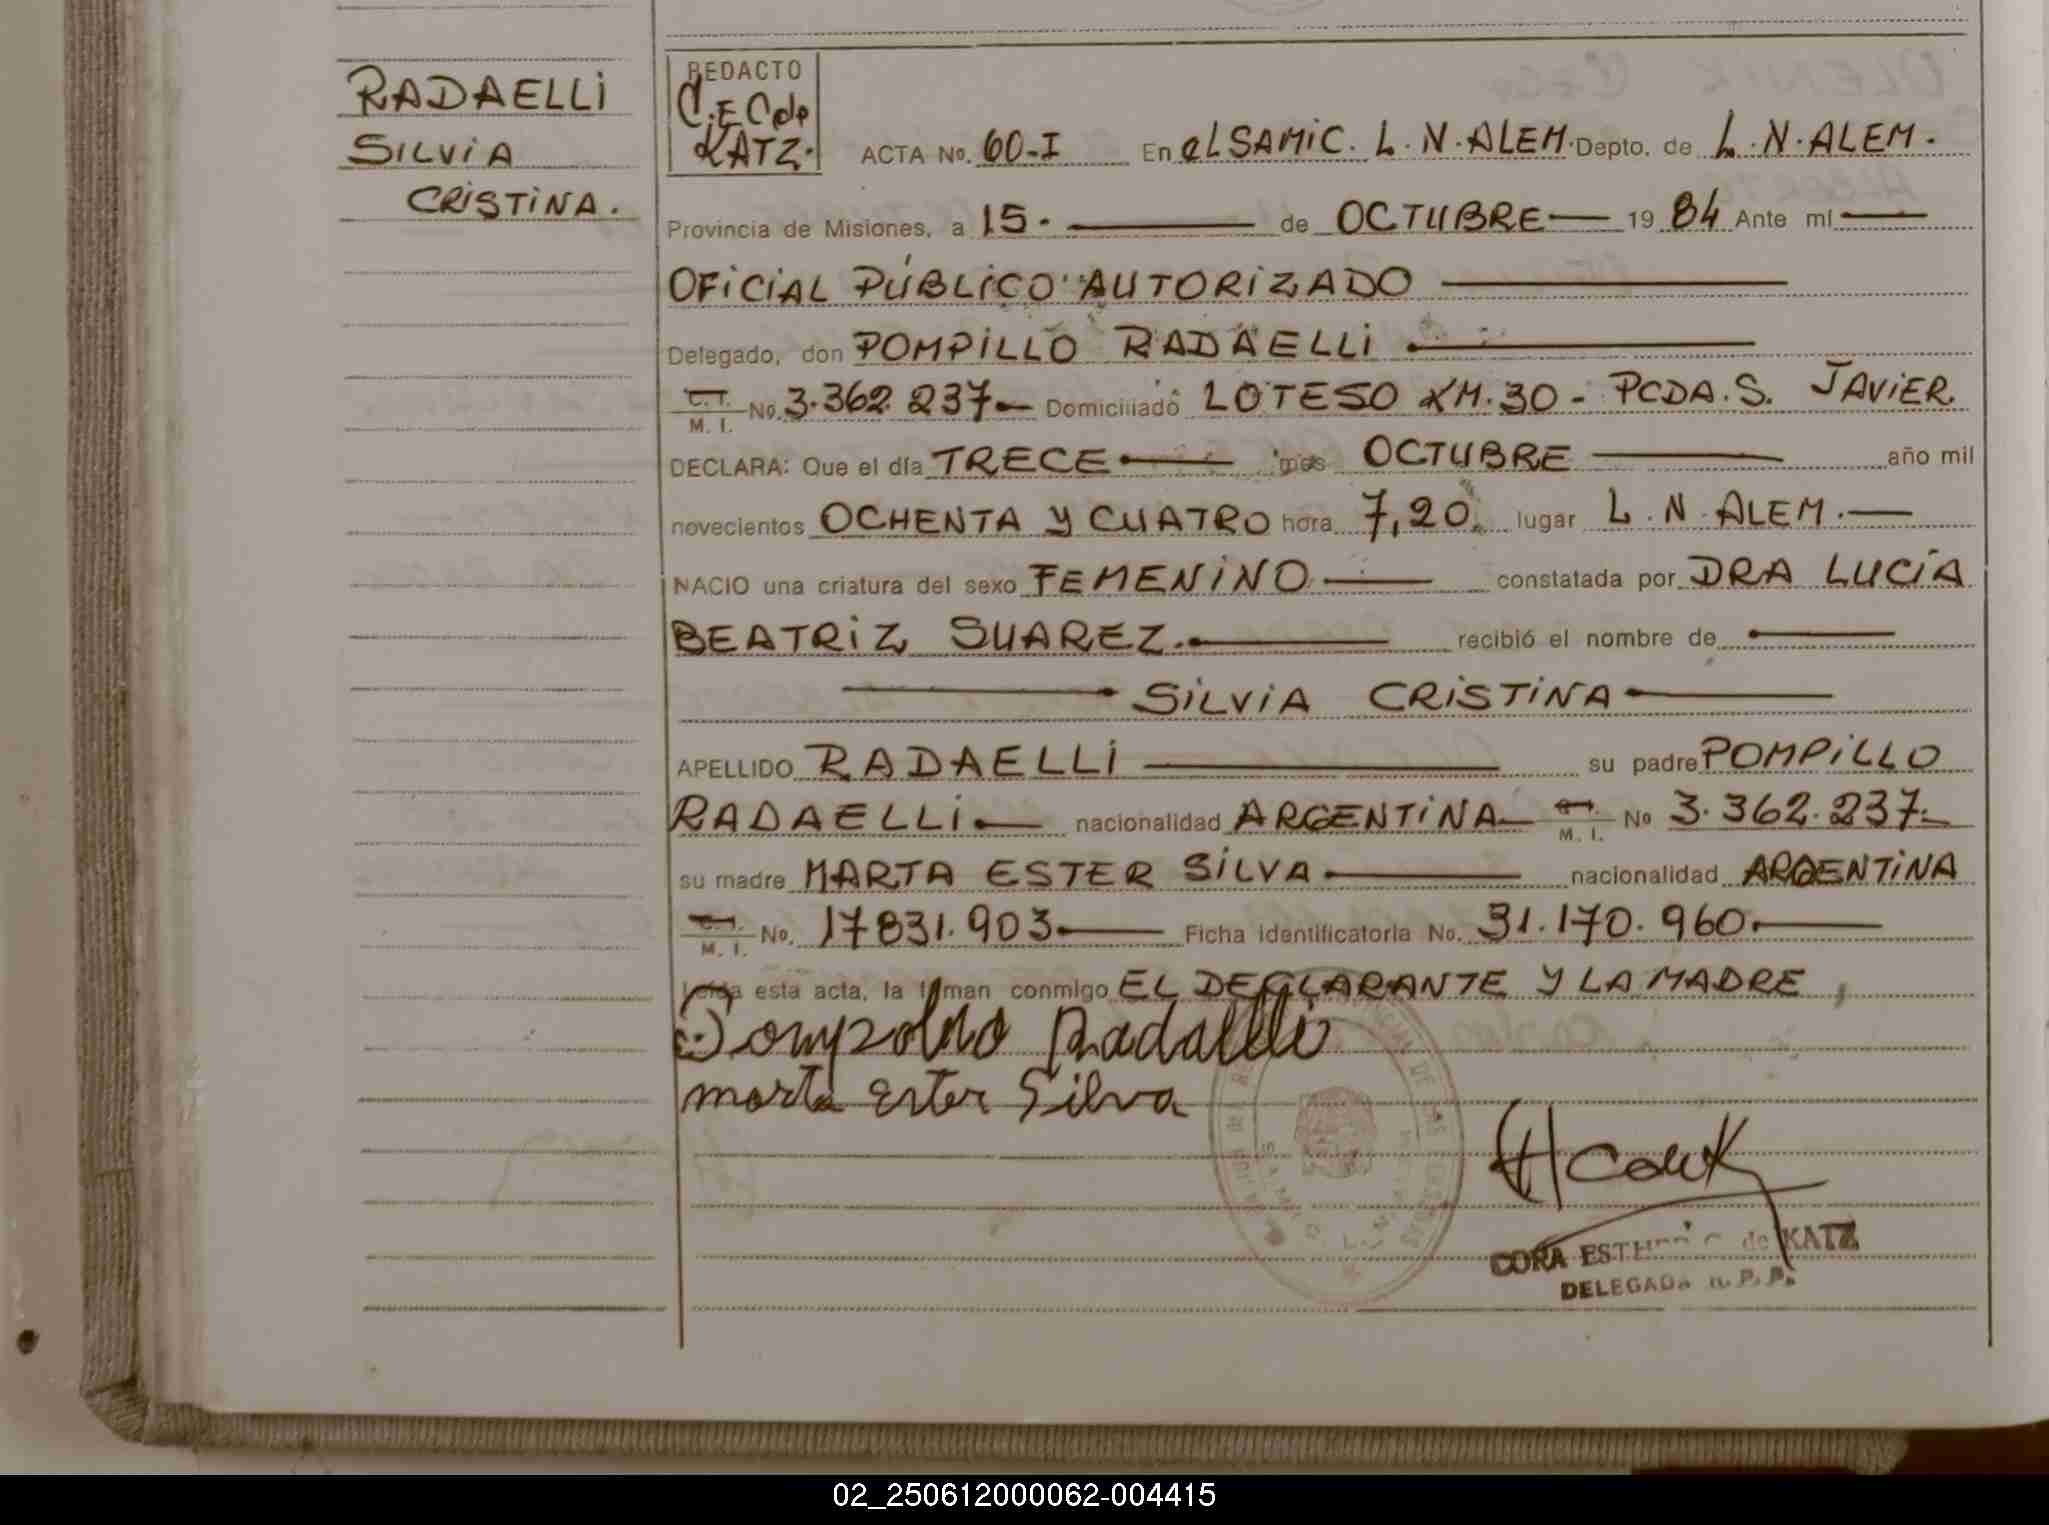 RADAELLI
SILVIA
CRISTINA.
REDACTO
C.E.C de
KATZ.
ACTA No. 60-I En el SAMIC. L.N.ALEM. Depto. de L.N.ALEM.
Provincia de Misiones, a 15. de OCTUBRE 19 84 Ante mi
OFICIAL PÚBLICO AUTORIZADO
Delegado, don POMPILLO RADAELLI
C.I. M. I. No. 3.362.237 Domiciliado LOTE50 KM.30 - PCDA.S. JAVIER.
DECLARA: Que el día TRECE mes OCTUBRE año mil
novecientos OCHENTA Y CUATRO hora 7,20 lugar L.N.ALEM.
NACIO una criatura del sexo FEMENINO constatada por DRA LUCÍA
BEATRIZ SUAREZ. recibió el nombre de
SILVIA CRISTINA
APELLIDO RADAELLI su padre POMPILLO
RADAELLI. nacionalidad ARGENTINA C.I. M. I. No 3.362.237.
su madre MARTA ESTER SILVA nacionalidad ARGENTINA
C.I. M. I. No. 17831.903 Ficha identificatoria No. 31.170.960.
Leída esta acta, la firman conmigo EL DECLARANTE Y LA MADRE,
Radaelli
marta Ester Silva
CORA de KATZ
DELEGADA R.P.P.
02_250612000062-004415